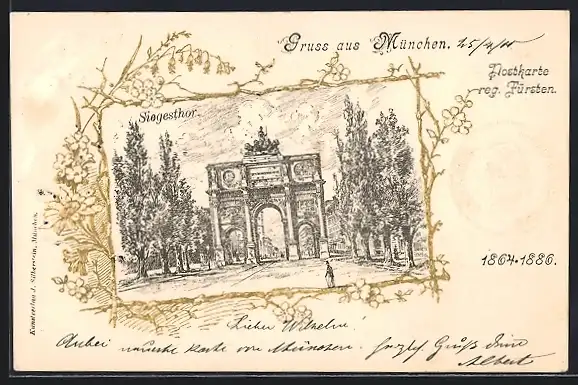 Gruss aus München. 25/4/00
Postkarte
reg. Fürsten.
Siegesthor.
1864-1886.
Kunstverlag J. Silberstein, München.
Lieber Wilhelm!
Anbei neueste Karte von München. Herzlich Gruß Dein
Albert